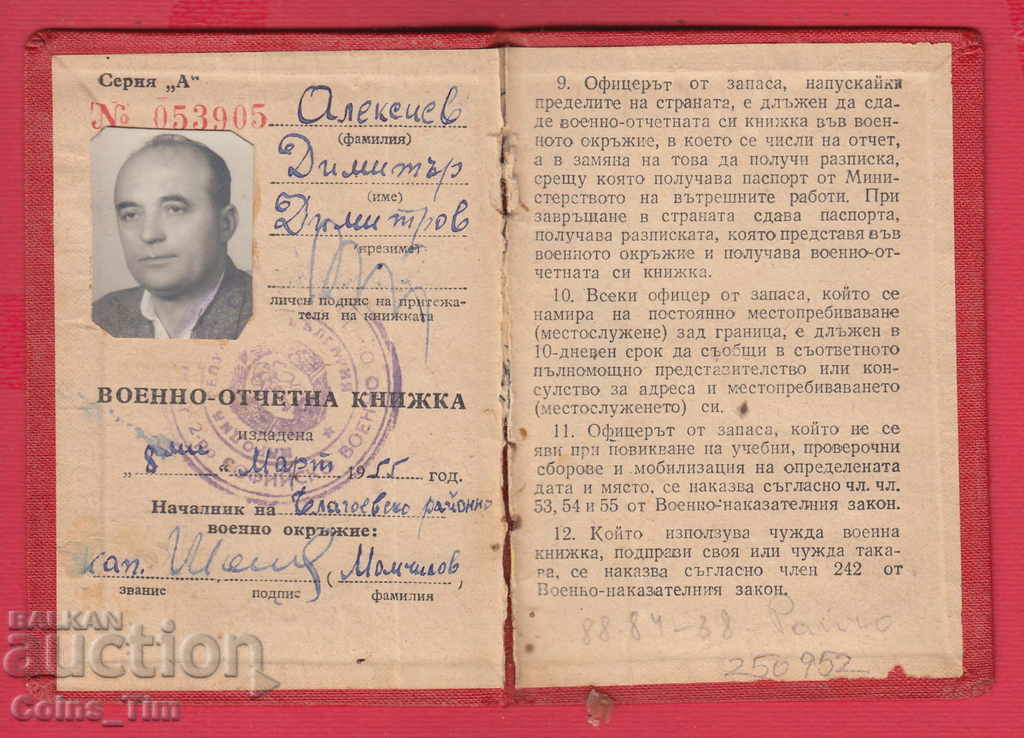 Серия „А“
№ 053905
Алексиев
(фамилия)
Димитър
(име)
Димитров
(презиме)
личен подпис на притежа-
теля на книжката
ВОЕННО-ОТЧЕТНА КНИЖКА
издадена
„ 8 ми “ Март 1955 год.
Началник на Благоевско районно
военно окръжие:
кап. (Момчилов
звание подпис фамилия
9. Офицерът от запаса, напускайки
пределите на страната, е длъжен да сда-
де военно-отчетната си книжка във воен-
ното окръжие, в което се числи на отчет,
а в замяна на това да получи разписка,
срещу която получава паспорт от Мини-
стерството на вътрешните работи. При
завръщане в страната сдава паспорта,
получава разписката, която представя във
военното окръжие и получава военно-от-
четната си книжка.
10. Всеки офицер от запаса, който се
намира на постоянно местопребиваване
(местослужене) зад граница, е длъжен в
10-дневен срок да съобщи в съответното
пълномощно представителство или кон-
сулство за адреса и местопребиваването
(местослуженето) си.
11. Офицерът от запаса, който не се
яви при повикване на учебни, проверочни
сборове и мобилизация на определената
дата и място, се наказва съгласно чл. чл.
53, 54 и 55 от Военно-наказателния закон.
12. Който използува чужда военна
книжка, подправи своя или чужда така-
ва, се наказва съгласно член 242 от
Военно-наказателния закон.
88.84-38
250952
BALKAN
auction
Coins_Tim